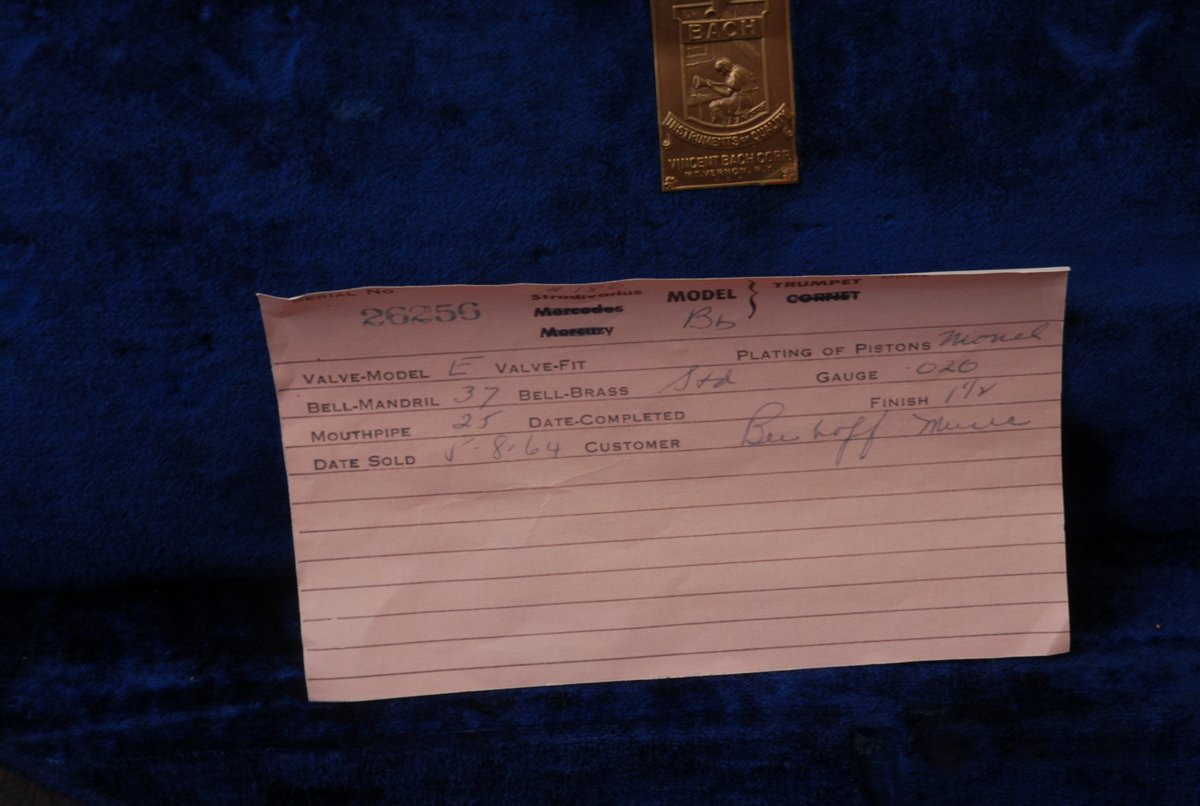 BACH
INSTRUMENTS OF QUALITY
VINCENT BACH CORP.
MT. VERNON, N.Y.
SERIAL NO 26256 Stradivarius Mercedes Mercury MODEL Bb TRUMPET CORNET
VALVE-MODEL E VALVE-FIT PLATING OF PISTONS Monel
BELL-MANDRIL 37 BELL-BRASS Std GAUGE .020
MOUTHPIPE 25 DATE-COMPLETED FINISH 1 1/2
DATE SOLD 5-8-64 CUSTOMER Music